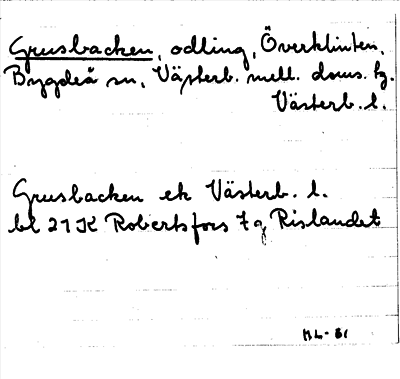 Grusbacken, odling, Överklinten,
Bygdeå sn, Västerb. mell. doms. tg.
Västerb. l.
Grusbacken ek Västerb. l.
bl 21 K Robertsfors 7 g Rislandet